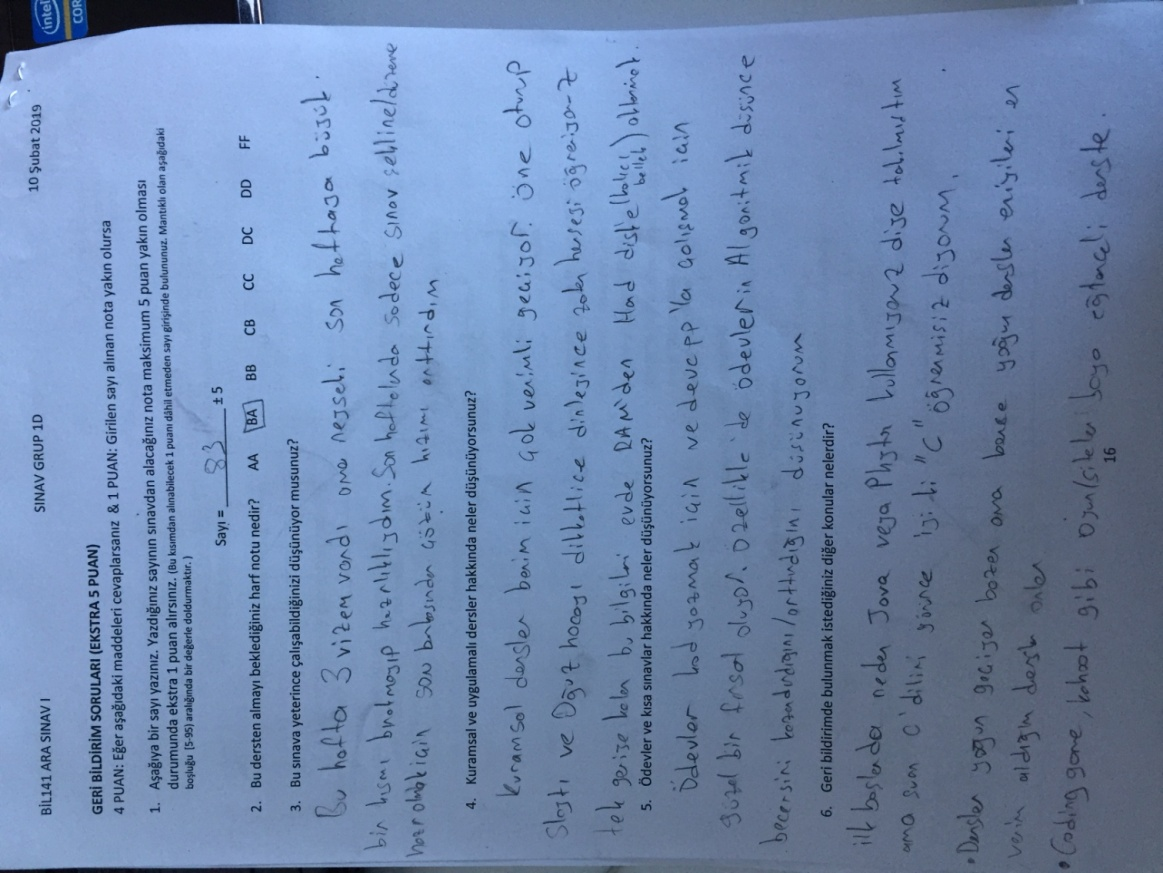 intel
COR
BİL141 ARA SINAVI SINAV GRUP 1D 10 Şubat 2019
GERİ BİLDİRİM SORULARI (EKSTRA 5 PUAN)
4 PUAN: Eğer aşağıdaki maddeleri cevaplarsanız & 1 PUAN: Girilen sayı alınan nota yakın olursa
1. Aşağıya bir sayı yazınız. Yazdığınız sayının sınavdan alacağınız nota maksimum 5 puan yakın olması
durumunda ekstra 1 puan alırsınız. (Bu kısımdan alınabilecek 1 puanı dâhil etmeden sayı girişinde bulununuz. Mantıklı olan aşağıdaki
boşluğu [5-95) aralığında bir değerle doldurmaktır.)
Sayı = 83 ± 5
2. Bu dersten almayı beklediğiniz harf notu nedir? AA BA BB CB CC DC DD FF
3. Bu sınava yeterince çalışabildiğinizi düşünüyor musunuz?
Bu hafta 3 vizem vardı ama neyseki son haftaya büyük
bir kısmı bırakmayıp hazırlıklıydım. Son haftalarda sadece sınav şekline/düzene
hazır olmak için son çözüm hızımı arttırdım
4. Kuramsal ve uygulamalı dersler hakkında neler düşünüyorsunuz?
Kuramsal dersler benim için çok verimli geçiyor. Öne oturup
Slaytı ve Oğuz hocayı dikkatlice dinleyince zaten herşeyi öğreniyoruz
tek geriye kalan bu bilgileri evde RAM'den Hard diske (kalıcı bellek) aktarmak.
5. Ödevler ve kısa sınavlar hakkında neler düşünüyorsunuz?
Ödevler kod yazmak için ve devcpp'la çalışmak için
güzel bir fırsat oluyor. Özellikle de ödevlerin Algoritmik düşünce
becerisini kazandırdığını/arttırdığını düşünüyorum
6. Geri bildirimde bulunmak istediğiniz diğer konular nelerdir?
ilk başlarda neden Java veya Phytn kullanmıyoruz diye takılmıştım
ama şuan C dilini görünce iyi ki "C" öğrenmişiz diyorum.
• Dersler yoğun geçiyor bazen ama bence yoğun dersler en iyileri en
verim aldığım dersler onlar
• Coding game, kahoot gibi oyun/siteler baya eğlenceli derste.
16